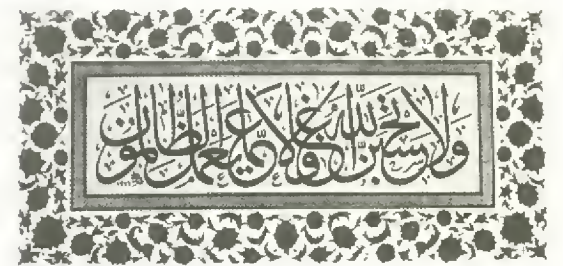 وَلَا تَحْسَبَنَّ اللَّهَ غَافِلًا عَمَّا يَعْمَلُ الظَّالِمُونَ